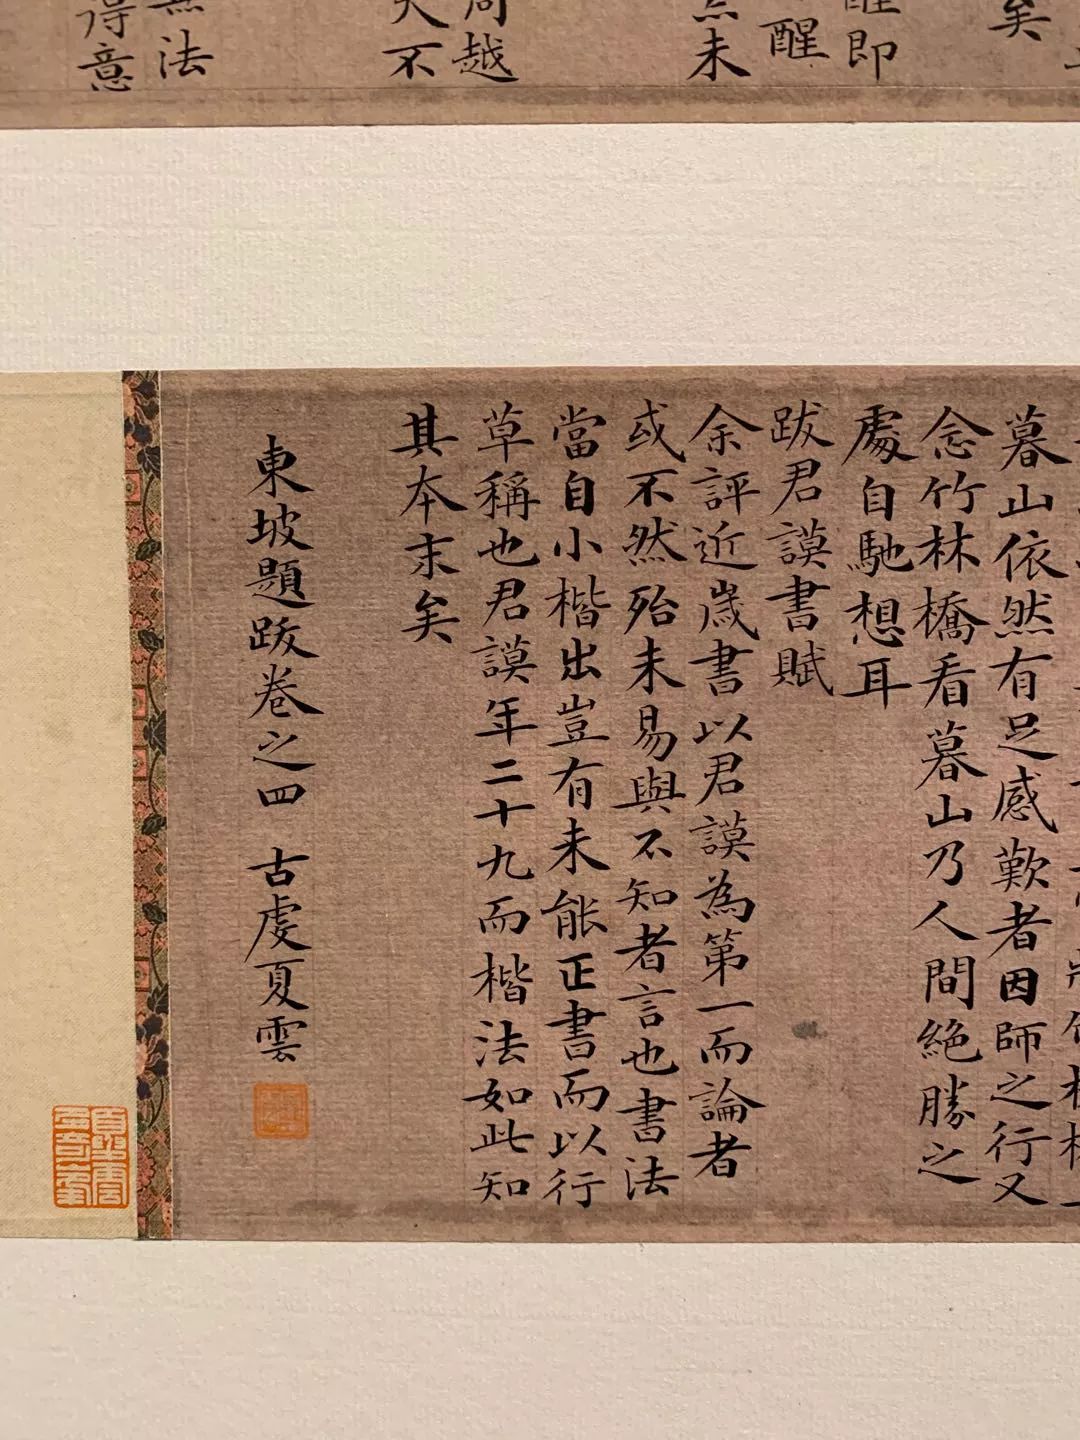 矣
醒即
醒
未
越
不
法
得意
暮山依然有足感歎者因師之行又
念竹林橋看暮山乃人間絕勝之
處自馳想耳
跋君謨書賦
余評近歲書以君謨為第一而論者
或不然殆未易與不知者言也書法
當自小楷出豈有未能正書而以行
草稱也君謨年二十九而楷法如此知
其本末矣
東坡題跋卷之四 古虞夏雲